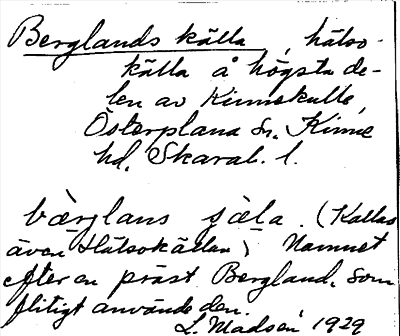 Berglands källa, hälso-
källa å högsta de-
len av Kinnekulle,
Österplana sn. Kinne
hd, Skarab. l.
bærglans sæla. (Kallas
även Hälsokällan) Namnet
efter en präst Bergland, som
flitigt använde den.
L. Madsén 1929